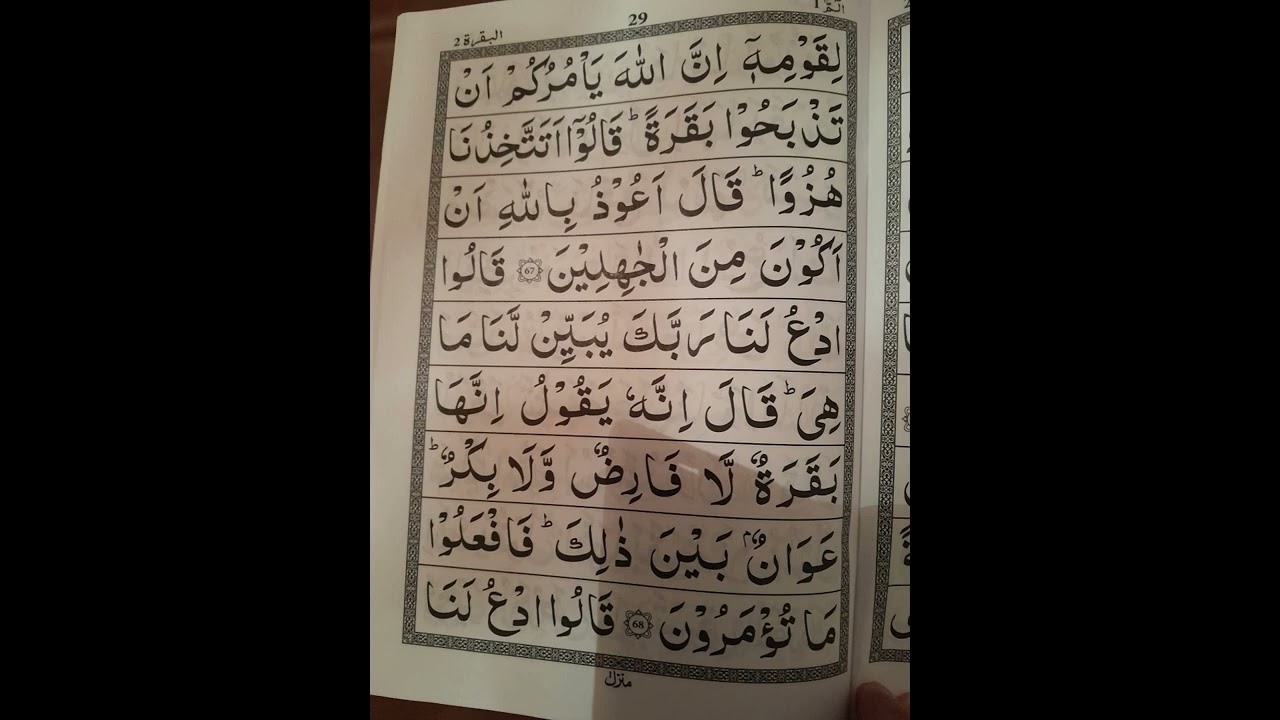 الٓمّٓ 1
29
البقرة 2
لِقَوْمِهٖۤ اِنَّ اللّٰهَ يَاْمُرُكُمْ اَنْ
تَذْبَحُوْا بَقَرَةً ؕ قَالُوْۤا اَتَتَّخِذُنَا
هُزُوًا ؕ قَالَ اَعُوْذُ بِاللّٰهِ اَنْ
اَكُوْنَ مِنَ الْجٰهِلِيْنَ 67 قَالُوا
ادْعُ لَنَا رَبَّكَ يُبَيِّنْ لَّنَا مَا
هِيَ ؕ قَالَ اِنَّهٗ يَقُوْلُ اِنَّهَا
بَقَرَةٌ لَّا فَارِضٌ وَّلَا بِكْرٌ ؕ
عَوَانٌۢ بَيْنَ ذٰلِكَ ؕ فَافْعَلُوْا
مَا تُؤْمَرُوْنَ 68 قَالُوا ادْعُ لَنَا
منزل